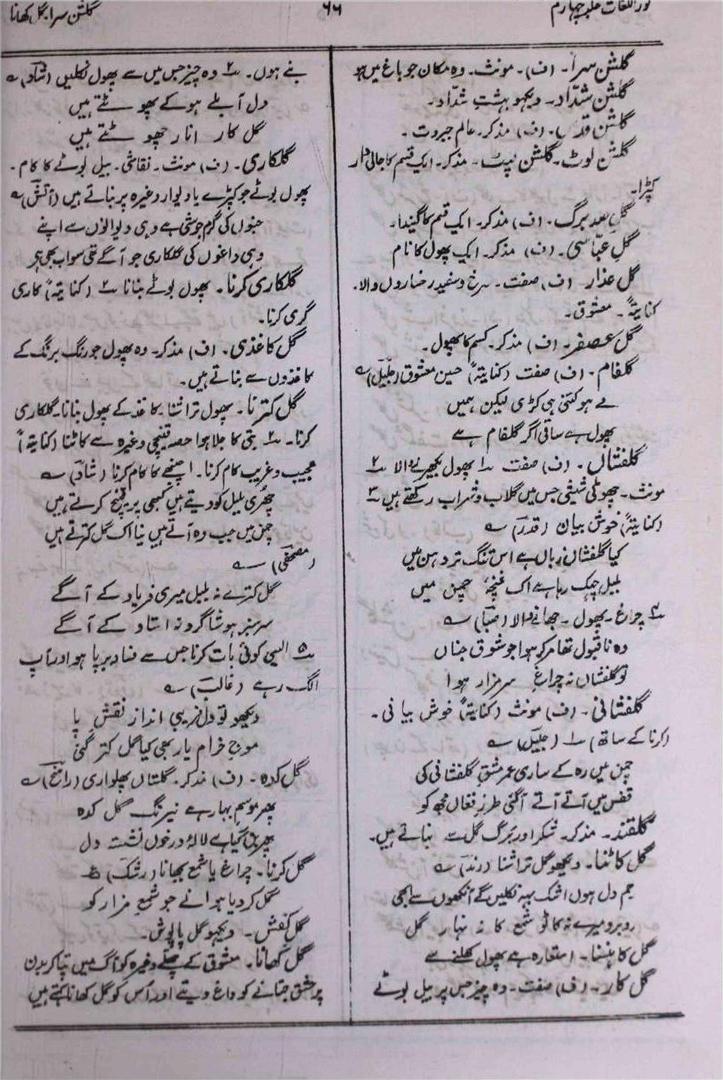 نوراللغات جلد چہارم
۶۶
گلشن سرا۔ گل کھانا
گلشن سرا۔ (ف)۔ مونث۔ وہ مکان جو باغ میں ہو
گلشن شدّاد۔ دیکھو بہشتِ شدّاد۔
گلشن قدس۔ (ف) مذکر۔ عالم جبروت۔
گلشن لوٹ۔ گلشن نیٹ۔ مذکر۔ ایک قسم کا جالی دار
کپڑا۔
گلِ صد برگ۔ (ف) مذکر۔ ایک قسم کا گیندا۔
گلِ عبّاسی۔ (ف) مذکر۔ ایک پھول کا نام
گل عذار۔ (ف) صفت۔ سرخ و سفید رخساروں والا۔
کنایۃً۔ معشوق۔
گل عصفر۔ (ف) مذکر۔ کسم کا پھول۔
گلفام۔ (ف) صفت (کنایۃً) حسین معشوق (جلیل) ؎
مے ہو کتنی ہی کڑی لیکن ہمیں
پھول ہے ساقی اگر گلفام ہے
گلفشاں۔ (ف) صفت ۱؎ پھول بکھیرنے والا ۲؎
مونث۔ چھوٹی شیشی جس میں گلاب و شراب رکھتے ہیں ۳؎
(کنایۃً) خوش بیان (قدر) ؎
کیا گلفشاں زباں ہے اس تنگ تر دہن میں
بلبل چہک رہا ہے اک غنچۂ چمن میں
۴؎ چراغ۔ پھول۔ جھانے والا (صبا) ؎
وہ نا قبول تھا مر کر ہوا جو شوق جناں
تو گلفشاں نہ چراغِ سرِ مزار ہوا
گلفشانی۔ (ف) مونث (کنایۃً) خوش بیانی۔
(کرنا کے ساتھ) ۱؎ (جلیل) ؎
چمن میں رہ کے ساری عمر مشقِ گلفشانی کی
قفس میں آتے آتے آ گئی طرزِ فغاں مجھ کو
گلقند۔ مذکر۔ شکر اور برگ گل سے بناتے ہیں۔
گل کاٹنا۔ دیکھو گل تراشنا (رند) ؎
جم دل ہوں اشک بہہ نکلیں گے آنکھوں سے ابھی
روبرو میرے نہ کاٹو شمع کا نہ نہار گل
گل کا ہنسنا۔ استعارہ ہے پھول کھلنے سے
گل کار۔ (ف) صفت۔ وہ چیز جس پر بیل بوٹے
بنے ہوں۔ ۲؎ وہ چیز جس میں سے پھول نکلیں (شاد) ؎
دل آبلے ہو کے پھوٹتے ہیں
گل کار انار چھوٹتے ہیں
گلکاری۔ (ف) مونث۔ نقاشی۔ بیل بوٹے کا کام۔
پھول بوٹے جو کپڑے یا دیوار وغیرہ پر بناتے ہیں (آتش) ؎
جنوں کی گرم جوشی ہے وہی دیوانوں سے اپنے
وہی داغوں کی گلکاری جو آگے تھی سو اب بھی ہے
گلکاری کرنا۔ پھول بوٹے بنانا ۲؎ (کنایۃً) کاری
گری کرنا۔
گل کاغذی۔ (ف) مذکر۔ وہ پھول جو رنگ برنگ کے
کاغذوں سے بناتے ہیں۔
گل کترنا۔ پھول تراشنا۔ کاغذ کے پھول بنانا۔ گلکاری
کرنا۔ ۲؎ بتی کا جلا ہوا حصہ قینچی وغیرہ سے کاٹنا (کنایۃً)
عجیب و غریب کام کرنا۔ اچنبھے کا کام کرنا (شاد) ؎
چھری بلبل کو دیتے ہیں کبھی پر قینچ کرتے ہیں
چمن میں جب وہ آتے ہیں نیا اک گل کترتے ہیں
(مصحفی) ؎
گل کترے نہ بلبل میری فریاد کے آگے
سرسبز ہو شاگرد نہ استاد کے آگے
۵؎ ایسی کوئی بات کرنا جس سے فساد برپا ہو اور آپ
الگ رہے (غالب) ؎
دیکھو تو دل فریبی انداز نقش پا
موجِ خرام یار بھی کیا گل کتر گئی
گل کدہ۔ (ف) مذکر۔ گلستاں پھلواری (راسخ) ؎
پھر موسم بہار ہے نیرنگ گل کدہ
پھر بن گیا ہے لالۂ در خوں نشستہ دل
گل کرنا۔ چراغ یا شمع بجھانا (رشک) ؎
گل کر دیا ہوا نے جو شمعِ مزار کو
گل کفش۔ دیکھو گل پاپوش۔
گل کھانا۔ معشوق کے چھلے وغیرہ کو آگ میں تپا کر بدن
پر عشق جتانے کو داغ دیتے اور اُس کو گل کھانا کہتے ہیں